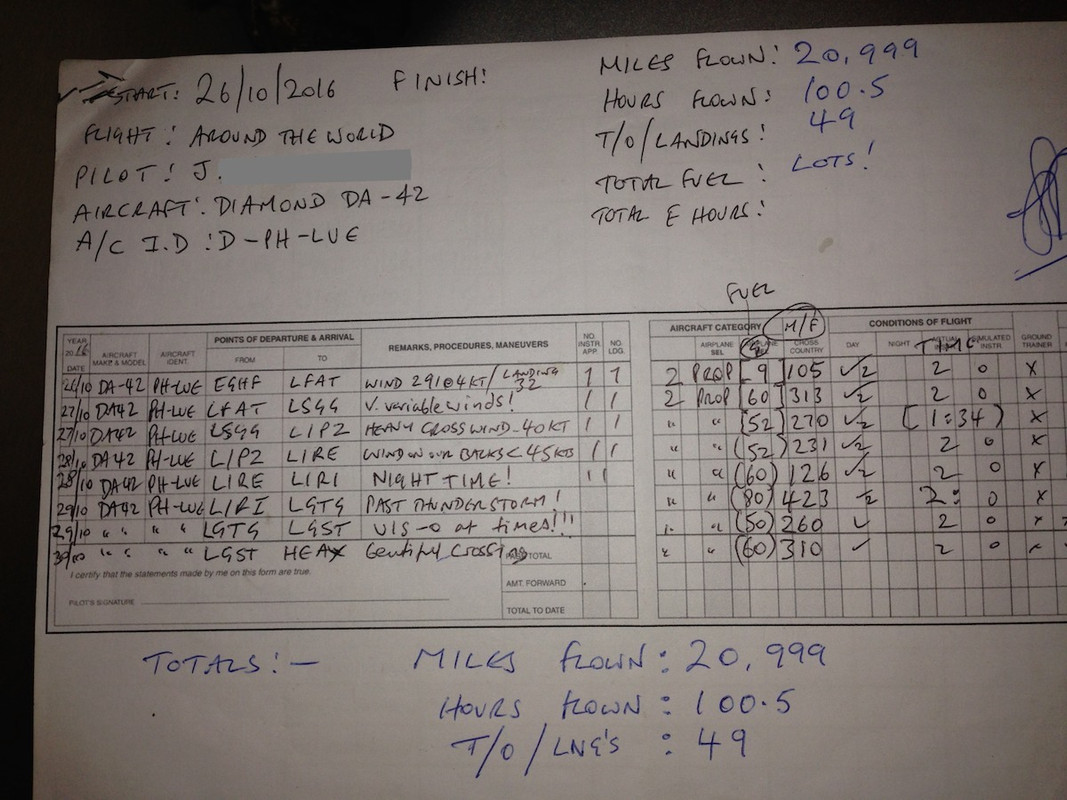 START: 26/10/2016 FINISH!
FLIGHT: AROUND THE WORLD
PILOT: J.
AIRCRAFT: DIAMOND DA-42
A/C I.D : D-PH-LUE
MILES FLOWN: 20,999
HOURS FLOWN: 100.5
T/O/LANDINGS: 49
TOTAL FUEL: LOTS!
TOTAL E HOURS:
FUEL
YEAR 2016 DATE AIRCRAFT MAKE & MODEL AIRCRAFT IDENT. POINTS OF DEPARTURE & ARRIVAL FROM TO REMARKS, PROCEDURES, MANEUVERS NO. INSTR. APP. NO. LDG. AIRCRAFT CATEGORY AIRPLANE SEL M/F CROSS COUNTRY CONDITIONS OF FLIGHT DAY NIGHT TIME SIMULATED INSTR. GROUND TRAINER
26/10 DA-42 PH-LUE EGHF LFAT WIND 291@4KT/ LANDING 32 1 1 2 PROP [9] 105 ✓2 2 0 X
27/10 DA42 PH-LUE LFAT LSGG V. variable winds! 1 1 2 PROP [60] 313 ✓2 2 0 X
27/10 DA42 PH-LUE LSGG LIPZ HEAVY CROSSWIND-40KT 1 1 " " [52] 270 ✓2 (1:34) X
28/10 DA42 PH-LUE LIPZ LIRE WIND ON OUR BACKS < 45KTS 1 1 " " (52) 231 ✓2 2 0 X
28/10 DA42 PH-LUE LIRE LIRI NIGHT TIME! 1 1 " " (60) 126 ✓2 2 0 X
29/10 DA42 PH-LUE LIRI LGTG PAST THUNDERSTORM! " " (80) 423 2: 0 X
29/10 " " " " LGTG LGST VIS -0 at times!!! " " (50) 260 ✓ 2 0 X
30/10 " " " " LGST HEAX Beautiful crossing " " (60) 310 ✓ 2 0
I certify that the statements made by me on this form are true. TOTAL
AMT. FORWARD
PILOT'S SIGNATURE TOTAL TO DATE
TOTALS:- MILES FLOWN: 20,999
HOURS FLOWN: 100.5
T/O/LNG'S : 49